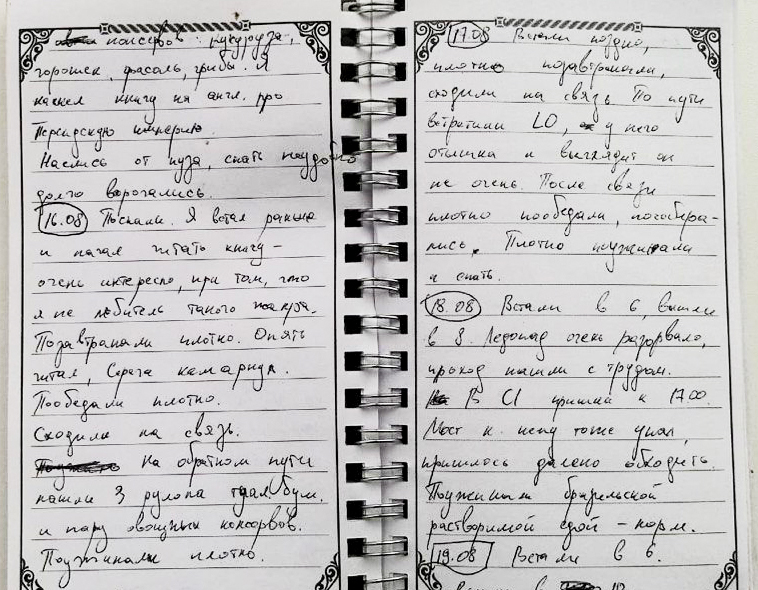 консервов: кукуруза,
горошек, фасоль, грибы. Я
нашел книгу на англ. про
Персидскую империю.
Наелись от пуза, спать неудобно
долго ворочались.
16.08 Поспали. Я встал раньше
и начал читать книгу -
очень интересно, при том, что
я не любитель такого жанра.
Позавтракали плотно. Опять
читал, Серега кемарил.
Пообедали плотно.
Сходили на связь.
На обратном пути
нашли 3 рулона туал. бум.
и пару овощных консервов.
Поужинали плотно.
17.08 Встали поздно,
плотно позавтракали,
сходили на связь. По пути
встретили LO, у него
отышка и выглядит он
не очень. После связи
плотно пообедали, пособира-
лись. Плотно поужинали
и спать.
18.08 Встали в 6, вышли
в 8. Ледопад очень разорвало,
проход нашли с трудом.
В C1 пришли к 17.00.
Мост к нему тоже упал,
пришлось далеко обходить.
Поужинали бразильской
растворимой едой - норм.
19.08 Встали в 6.